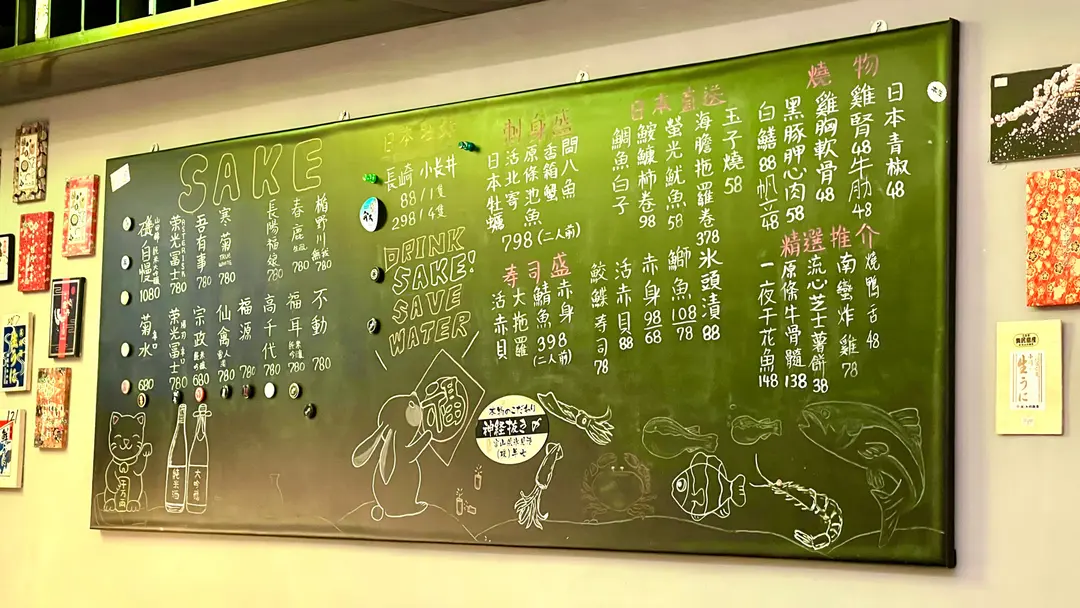 SAKE
磯自慢 1080
菊水 680
榮光冨士 780
榮光冨士 780
吾有事 780
宗政 680
寒菊 780
仙禽 780
福源 780
長陽福娘 780
高千代 780
春鹿 780
福耳 780
楯野川 780
不動 780
長崎 小長井
88/1隻
298/4隻
DRINK
SAKE!
SAVE
WATER
福
刺身盛
間八魚
香箱蟹
原條池魚
活北寄
日本牡蠣
798(二人前)
寿司盛
赤身
鯖魚
大拖羅
活赤貝
398
(二人前)
日本直送
玉子燒 58
海膽拖羅卷 378
螢光魷魚 58
鮟鱇柿卷 98
鯛魚白子
氷頭漬 88
鰤魚 108/78
赤身 98/68
活赤貝 88
鮫鰈寿司 78
燒物
日本青椒 48
雞腎 48
牛肋 48
雞胸軟骨 48
黑豚胛心肉 58
白鱔 88
帆立 48
精選推介
燒鴨舌 48
南蠻炸雞 78
流心芝士薯餅 38
原條牛骨髓 138
一夜干花魚 148
純米酒
大吟醸
千万両
本物のこだわり
神経抜き〆
生うに